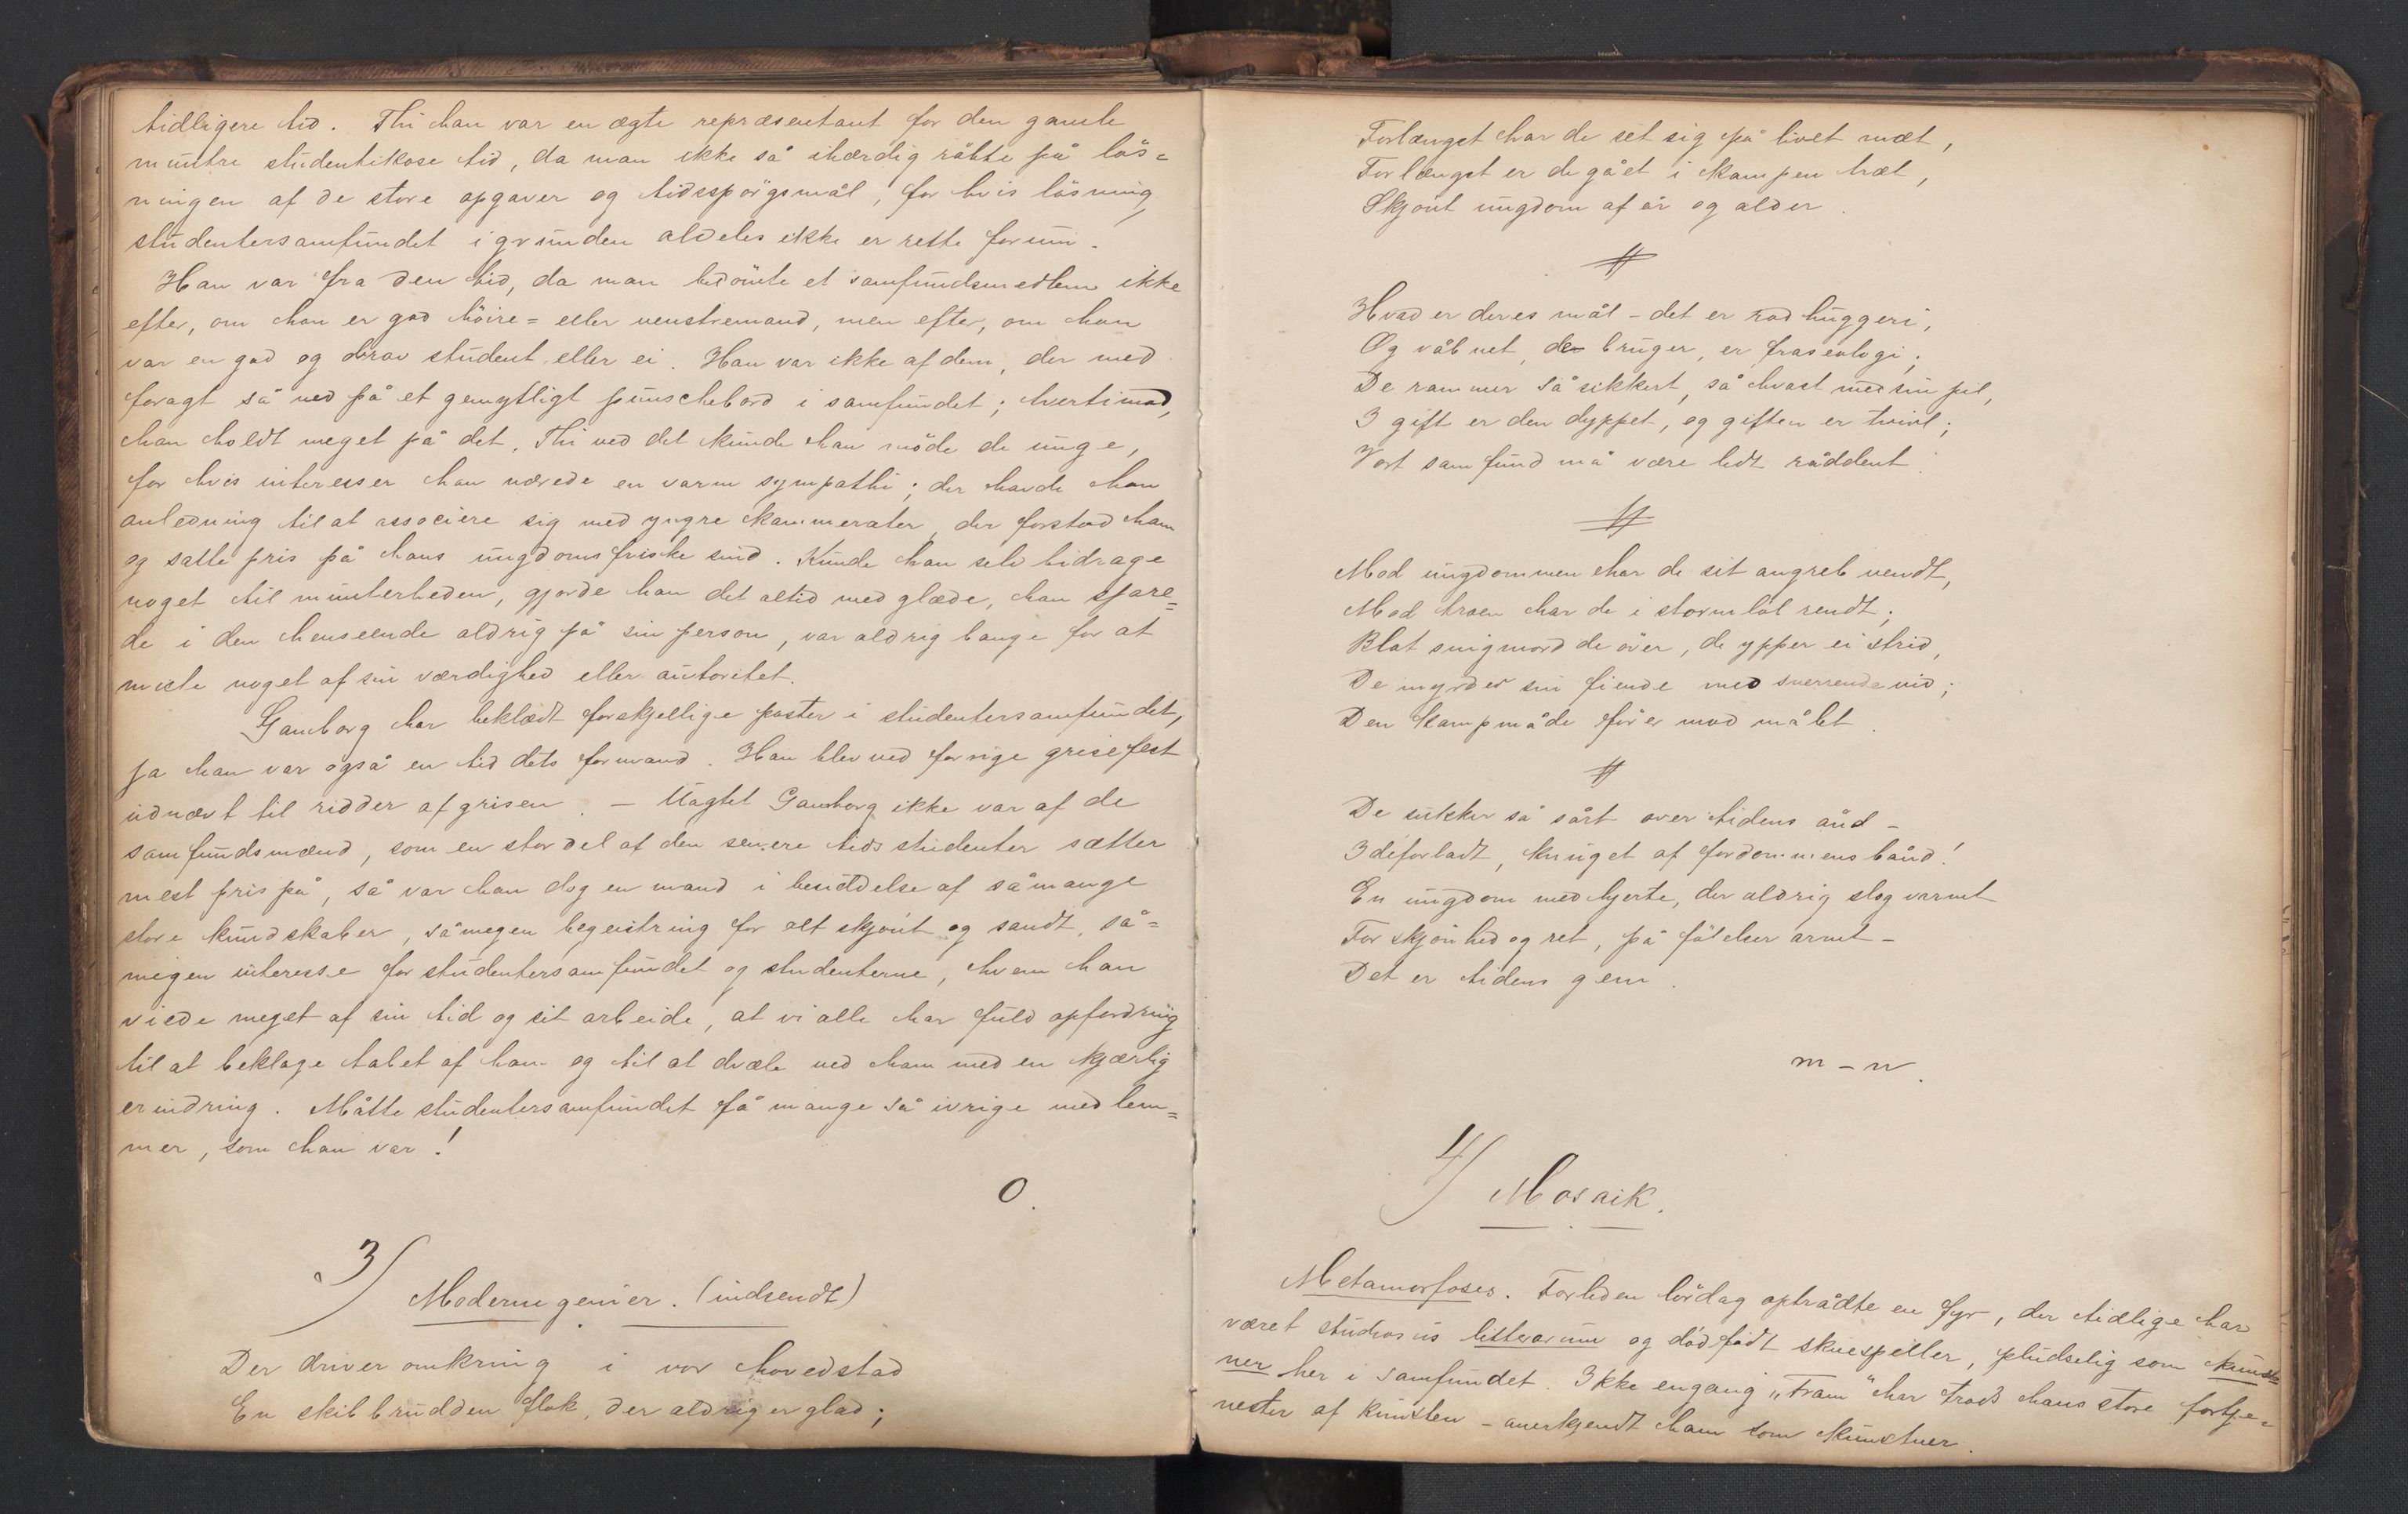 tidligere tid. Thi han var en ægte repræsentant for den gamle
muntre studentikose tid, da man ikke så ihærdig råbte på løs=
ningen af de store opgaver og tidsspörgsmål, for hvis løsning
studentersamfundet i grunden aldeles ikke er rette forum.
Han var fra den tid, da man bedömte et samfundsmedlem ikke
efter, om han er god höire= eller venstremand, men efter, om han
var en god og brav student eller ei. Han var ikke af dem, der med
foragt så ned på et gemytligt punschebord i samfundet; tvertimod,
han holdt meget på det. Thi ved det kunde han møde de unge,
for hvis interesser han nærede en varm sympathi; der havde han
anledning til at associere sig med yngre kammerater, der forstod ham
og satte pris på hans ungdomsfriske sind. Kunde han selv bidrage
noget til munterheden, gjorde han det altid med glæde, han spare=
de i den henseende aldrig på sin person, var aldrig bange for at
miste noget af sin værdighed eller autoritet.
Gamborg har beklædt forskjellige poster i studentersamfundet,
ja han var også en tid dets formand. Han blev ved forrige grisefest
udnævt til ridder af grisen. — Uagtet Gamborg ikke var af de
samfundsmænd, som en stor del af den senere tids studenter sætter
mest pris på, så var han dog en mand i besiddelse af såmange
store kundskaber, såmegen begeistring for alt skjönt og sandt, så=
megen interesse for studentersamfundet og studenterne, hvem han
viede meget af sin tid og sit arbeide, at vi alle har fuld opfordring
til at beklage tabet af ham og til at dvæle ved ham med en kjærlig
erindring. Måtte studentersamfundet få mange så ivrige medlem=
mer, som han var!
O.
3/
Moderne genier. (indsendt)
Der driver omkring i vor hovedstad
En skibbrudden flok, der aldrig er glad;
Forlænget har de set sig på livet mæt,
Forlænget er de gået i kampen træt,
Skjønt ungdom af år og alder.
#
Hvad er deres mål – det er rad huggeri,
Og våbnet, de bruger, er fraseologi;
De rammer så sikkert, så hvast med sin pil,
I gift er den dyppet, og giften er tvivl;
Vort samfund må være lidt råddent.
#
Mod ungdommen har de sit angreb vendt,
Mod troen har de i stormløb rendt;
Blot snigmord de över, de ypper ei strid,
De myrder sin fiende med snerrende vid;
Den kampmåde fører mod målet.
#
De sukker så sårt over tidens ånd –
Ideforladt, knuget af fordommens bånd!
En ungdom med hjerte, der aldrig slog varmt
For skjönhed og ret, på følelser armt –
Det er tidens geni.
m – n.
4/
Mosaik.
Metamorfoses. Forleden lördag optrådte en fyr, der tidlige har
været studiosus litterarum og dödfödt skuespiller, pludselig som kunst=
ner her i samfundet. Ikke engang „Fram“ har trods hans store fortje=
nester af kunsten – anerkjendt ham som kunstner.